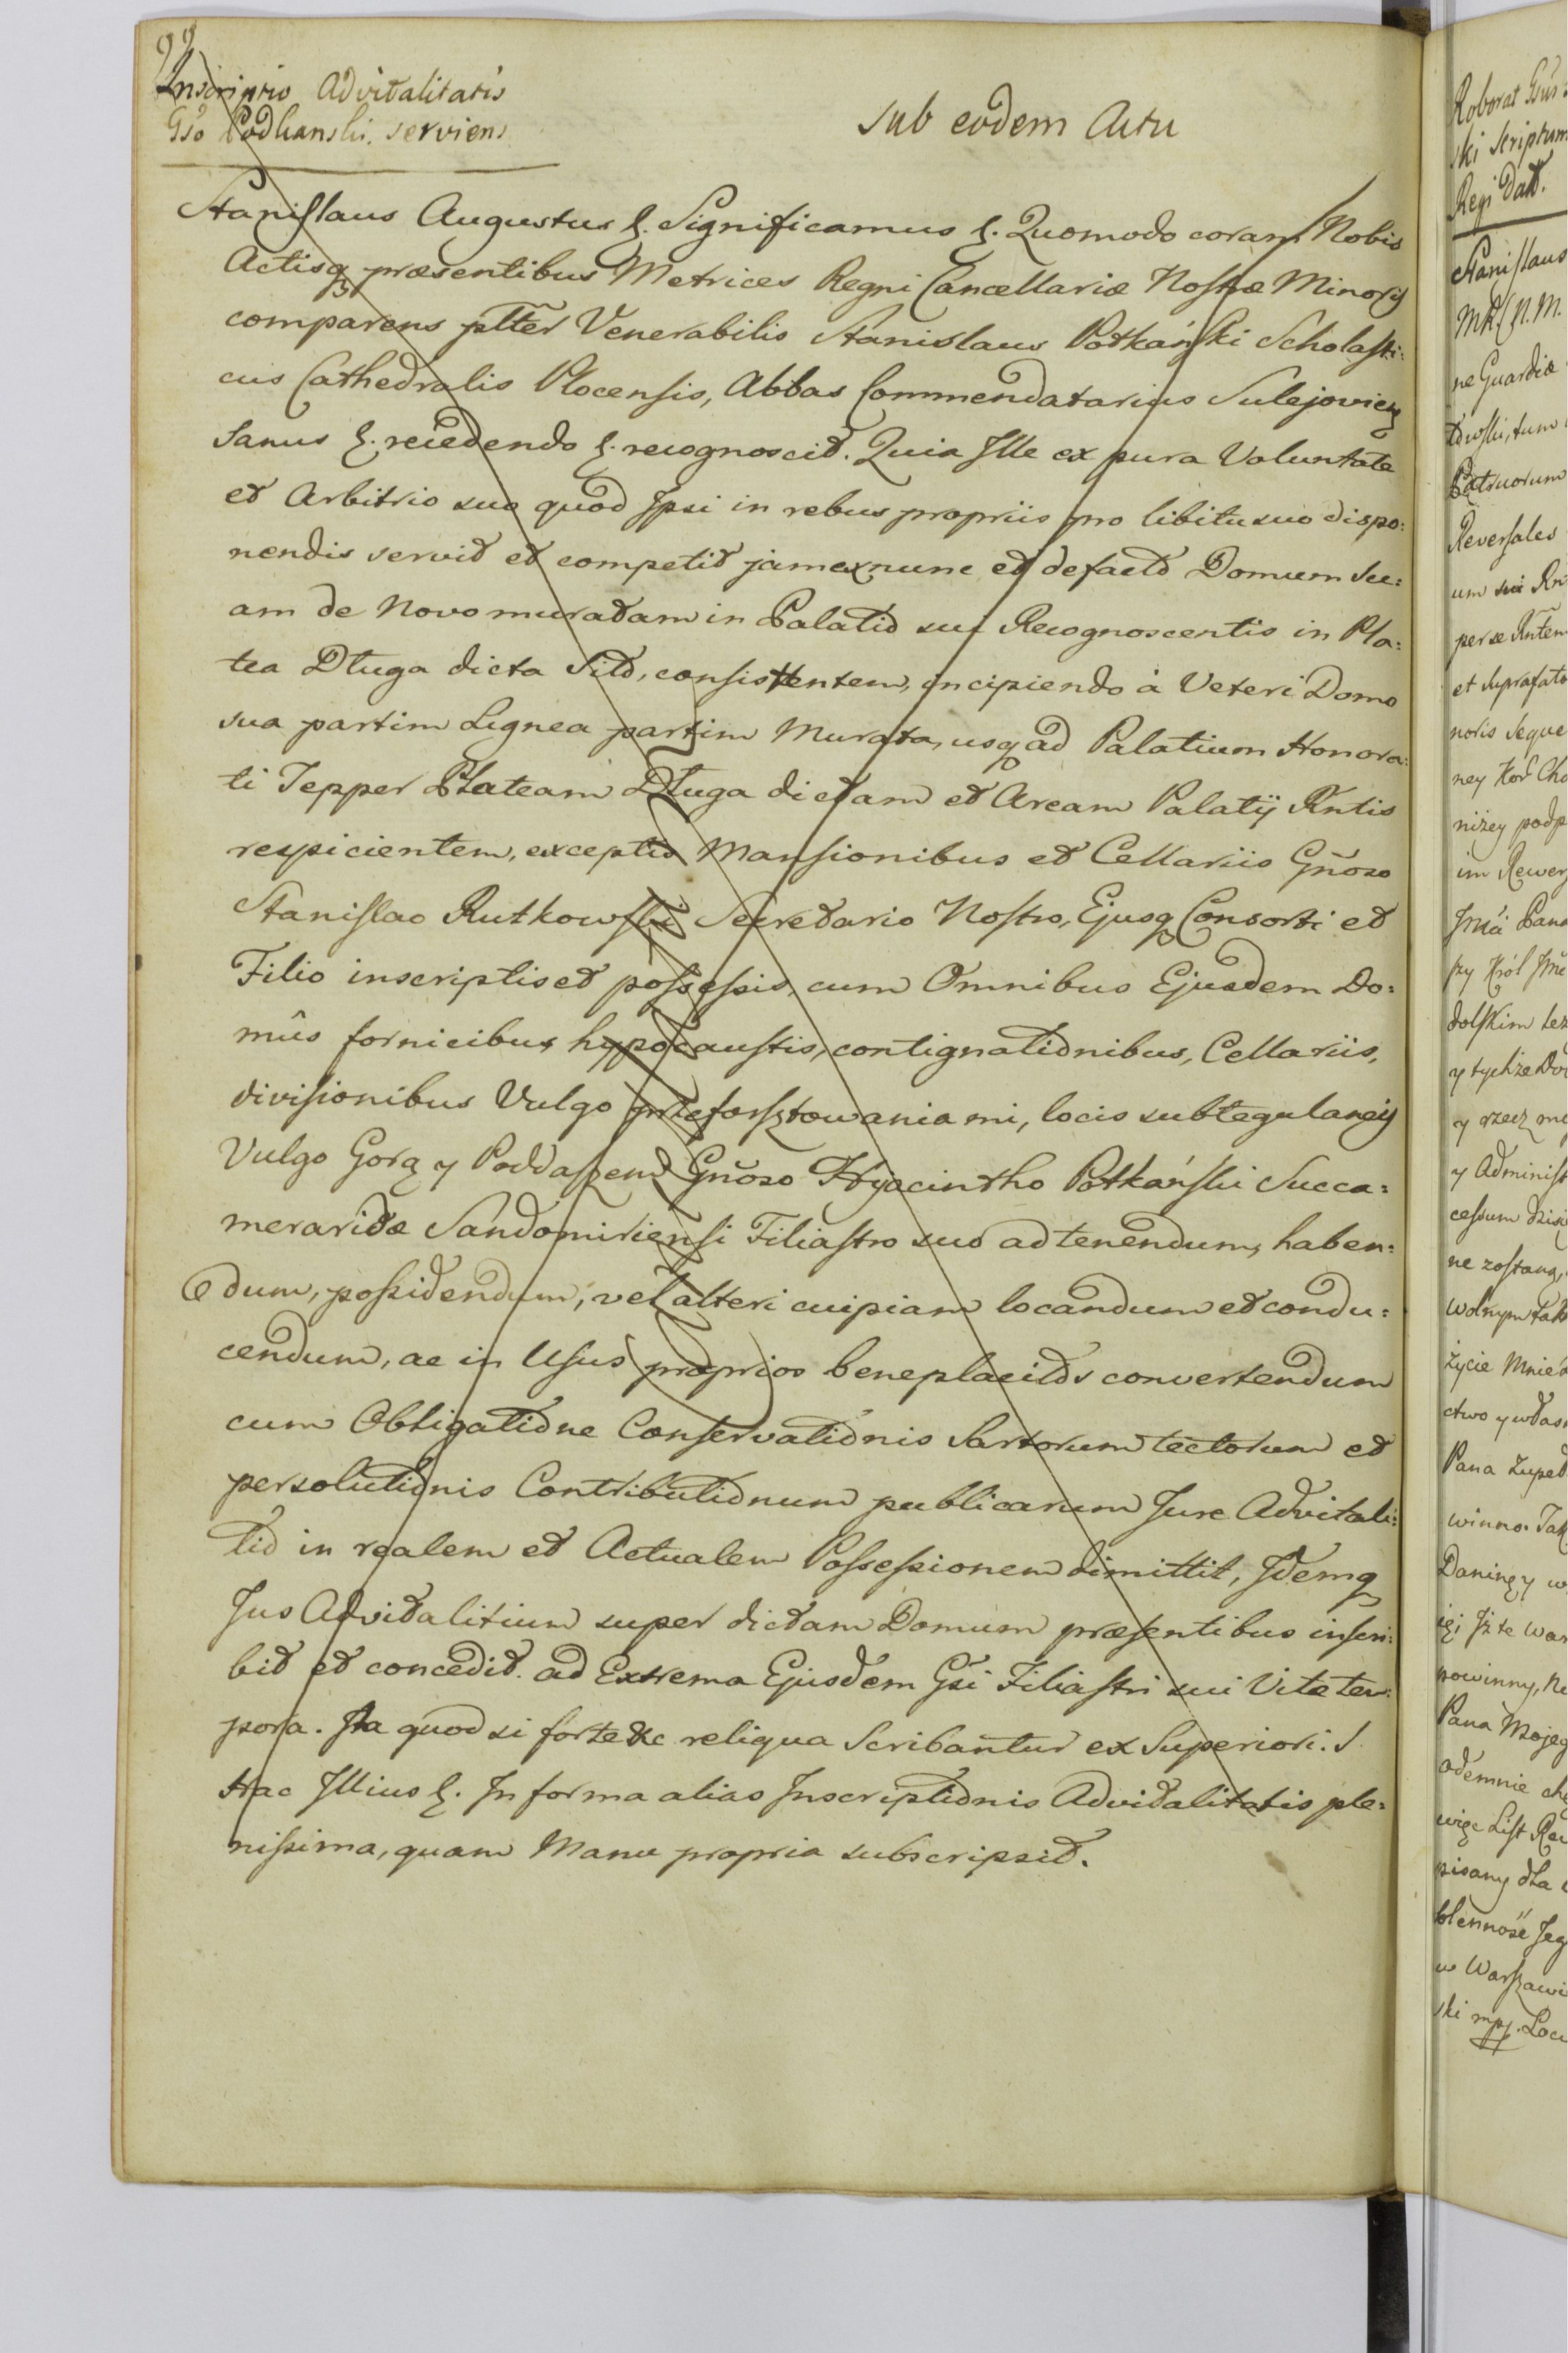 99
Inscriptio Advitalitatis
Gso Podkanski serviens
sub eodem Actu
Stanislaus Augustus &. Significamus &. Quomodo coram Nobis
Actisq præsentibus Metrices Regni Cancellariæ Nostræ Minoris
comparens pltēr Venerabilis Stanislaus Potkański Scholasti:
cus Cathedralis Plocensis, Abbas Commendatarius Sulejovien
Sanus &. recedendo &. recognoscit. Quia Ille ex pura Voluntate
et Arbitrio suo quod Ipsi in rebus propriis pro libitu suo dispo:
nendis servit et competit jam ex nunc et de facto Domum Su:
am de Novo muratam in Palatio sui Recognoscentis in Pla:
tea Długa dicta Sito, consistentem, incipiendo à Veteri Domo
sua partim Lignea partim Murata, usq ad Palatium Honora:
ti Tepper Plateam Długa dictam et Aream Palatij Rntis
respicientem, exceptis Mansionibus et Cellariis Gnoso
Stanislao Rutkowski Secretario Nostro, Ejusq Consorti et
Filio inscriptis et possessis, cum Omnibus Ejusdem Do:
mûs fornicibus hypocaustis, contignationibus, Cellariis,
divisionibus Vulgo przeforsztowaniami, locis subtegulaneis
Vulgo Gorą y Poddaszem Gnoso Hyacintho Potkański Succa:
merarido Sandomiriensi Filiastro suo ad tenendum, haben:
dum, possidendum, vel alteri cuipiam locandum et condu:
cendum, ac in Usus proprios beneplacitos convertendum
cum Obligatione Conservationis Sartorum tectorum et
persolutionis Contributionum publicarum Jure Advitali:
tio in realem et Actualem Possessionem dimittit, Idemq
Jus Advitalitium super dictam Domum præsentibus inscri:
bit et concedit. ad Extrema Ejusdem Gsi Filiastri sui Vitæ tem:
pora. Ita quod si forte &c reliqua Scribantur ex Superiori. S
Hac Illius &. In forma alias Inscriptionis Advitalitatis ple:
nissima, quam Manu propria subscripsit.
Roborat Gsus
ski Scriptum
Regi Datt.
Stanislaus
MR. (P. M.
ne Guardiæ
Patruorum
Reversales
um sui Rn
per se Rntem
et Suprafato
noris Seque
niżey podp
im Rewer
Jmci Pana
szy Król Jmc
dolskim też
y tychże Do
y rzecz mo
y Administ
cessum dzisi
ne zostaną,
wolnym tak
życie Mnie
ctwo y włas
Pana Zuped
winno. Tak
Daning y w
powinny, Ne
Pana Mojeg
odemnie che
więc List Rew
pisany dla
w Warszawie
ski mp. Locu